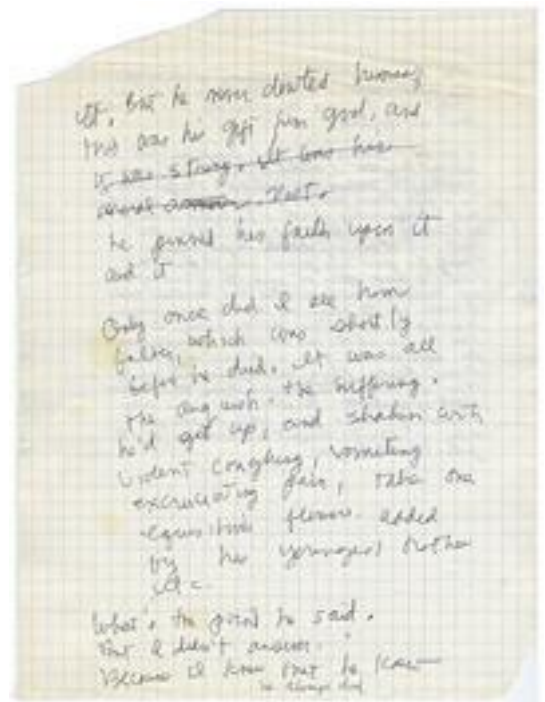 it. But he never doubted
this was his gift from god, and
it was strong. It was his
he pinned his faith upon it
and it
Only once did I see him
falter, which was shortly
before he died. It was all
the anguish. the suffering.
he'd get up, and shaken with
violent coughing, vomiting
excruciating pain, take one
added
by his youngest brother
etc.
What's the point he said.
But I didn't answer.
Because I knew that he knew
he always did